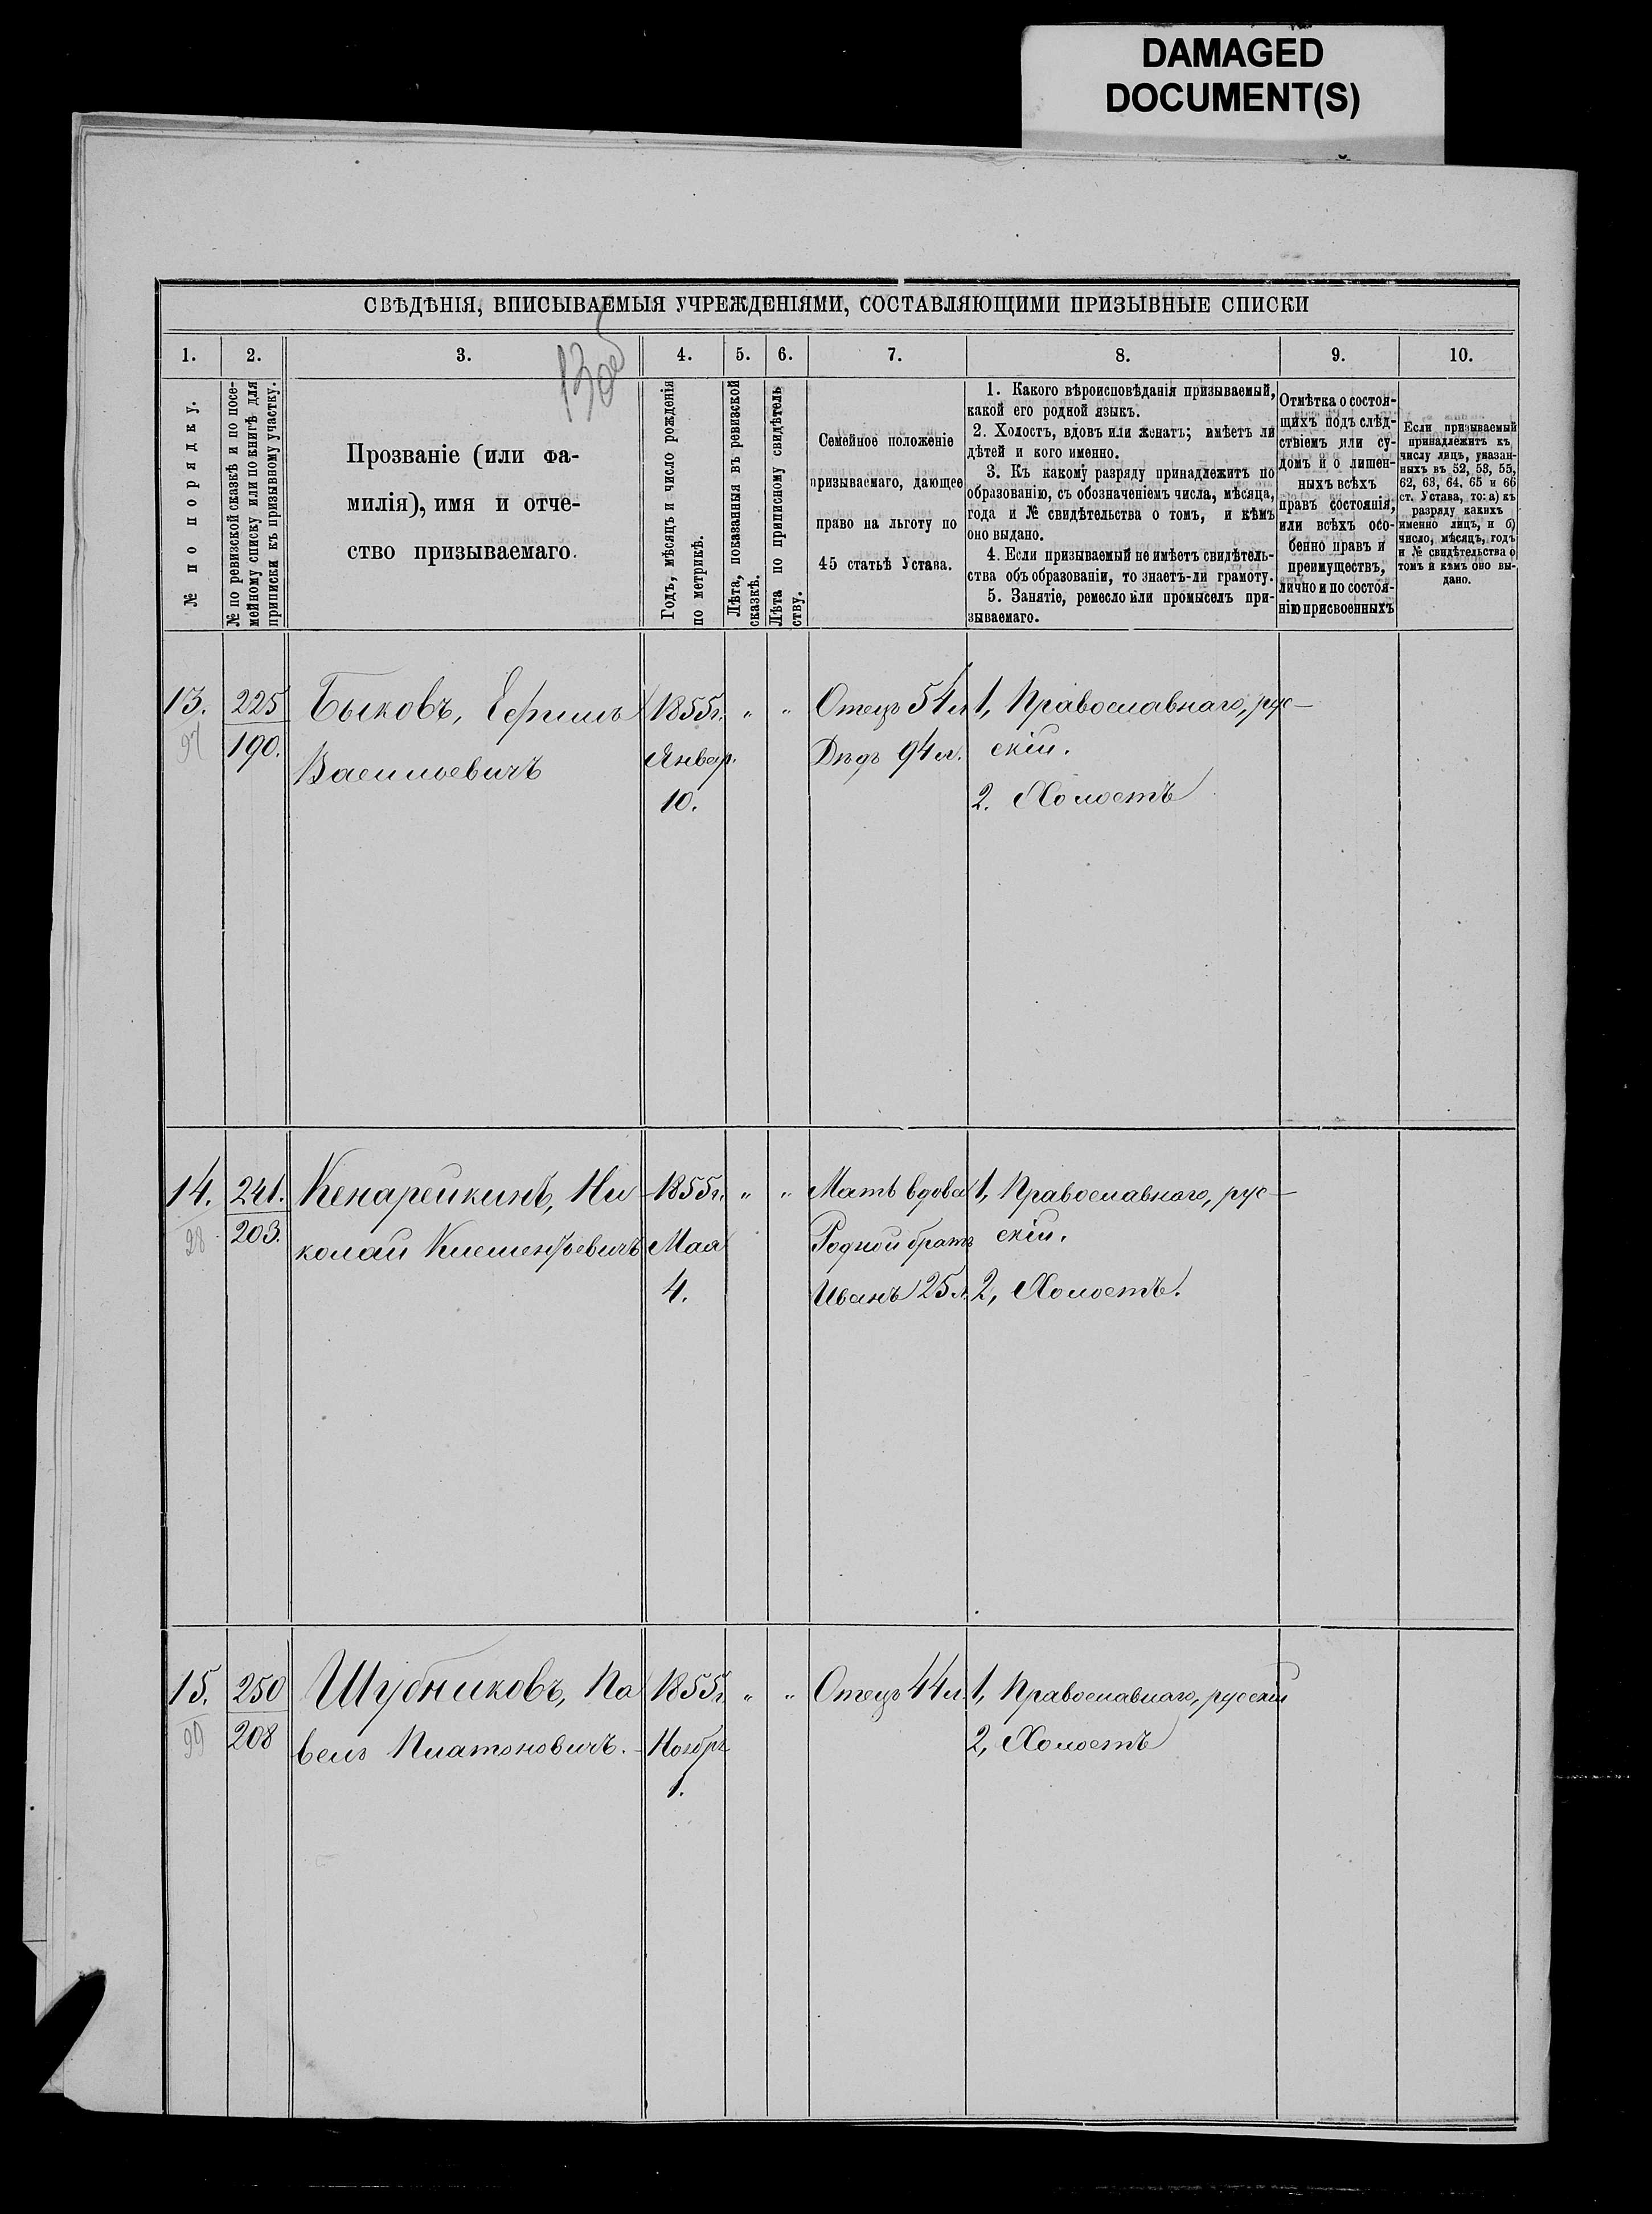 DAMAGED
DOCUMENT(S)
СВѢДѢНІЯ, ВПИСЫВАЕМЫЯ УЧРЕЖДЕНІЯМИ, СОСТАВЛЯЮЩИМИ ПРИЗЫВНЫЕ СПИСКИ
1. 2. 3. 4. 5. 6. 7. 8. 9. 10.
№ по порядку.
№ по ревизской сказкѣ и по посе-
мейному списку или по книгѣ для
приписки къ призывному участку.
Прозваніе (или фа-
милія), имя и отче-
ство призываемаго.
Годъ, мѣсяцъ и число рожденія
по метрикѣ.
Лѣта, показанныя въ ревизской
сказкѣ.
Лѣта по приписному свидѣтель
ству.
Семейное положеніе
призываемаго, дающее
право на льготу по
45 статьѣ Устава.
1. Какого вѣроисповѣданія призываемый,
какой его родной языкъ.
2. Холостъ, вдовъ или женатъ; имѣетъ ли
дѣтей и кого именно.
3. Къ какому разряду принадлежитъ по
образованію, съ обозначеніемъ числа, мѣсяца,
года и № свидѣтельства о томъ, и кѣмъ
оно выдано.
4. Если призываемый не имѣетъ свидѣтель-
ства объ образованіи, то знаетъ-ли грамоту.
5. Занятіе, ремесло или промыселъ при-
зываемаго.
Отмѣтка о состоя-
щихъ подъ слѣд-
ствіемъ или су-
домъ и о лишен-
ныхъ всѣхъ
правъ состоянія,
или всѣхъ осо-
бенно правъ и
преимуществъ,
лично и по состоя-
нію присвоенныхъ
Если призываемый
принадлежитъ къ
числу лицъ, указан-
ныхъ въ 52, 53, 55,
62, 63, 64. 65 и 66
ст. Устава, то: а) къ
разряду какихъ
именно лицъ, и б)
число, мѣсяцъ, годъ
и № свидѣтельства о
томъ и кѣмъ оно вы-
дано.
13.
97
225
190.
Быковъ, Ефимъ
Васильевичъ
1855г.
Январ.
10.
" "
Отецъ 51 л
Дѣдъ 94 л.
1, Православнаго, рус-
скій.
2. Холостъ
14.
98
241.
203.
Кенарейкинъ, Ни
колай Клементьевичъ
1855г.
Мая
4.
" "
Мать вдова
Родной братъ
Иванъ 25 л.
1, Православнаго, рус-
скій.
2, Холостъ.
15.
99
250
208
Шубниковъ, Па
велъ Платоновичъ.
1855г.
Ноябрь
1.
" "
Отецъ 44 л.
1, Православнаго, русскій
2, Холостъ